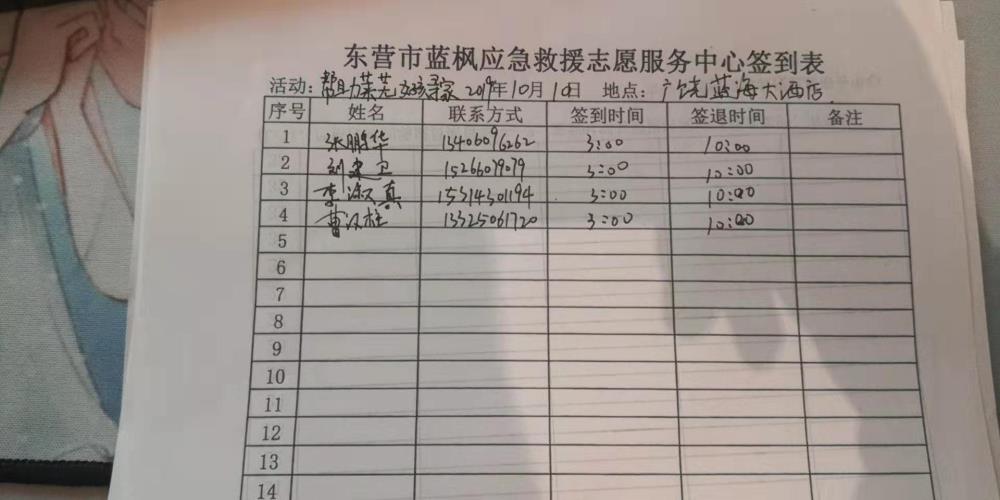 东营市蓝枫应急救援志愿服务中心签到表
活动：帮助莱芜女孩寻家 2019年10月10日 地点：广饶蓝海大酒店
序号 姓名 联系方式 签到时间 签退时间 备注
1 张鹏华 13406096262 3:00 10:00
2 刘建卫 15266079079 3:00 10:00
3 李淑真 15314301194 3:00 10:00
4 曹汉柱 13325061720 3:00 10:00
5
6
7
8
9
10
11
12
13
14